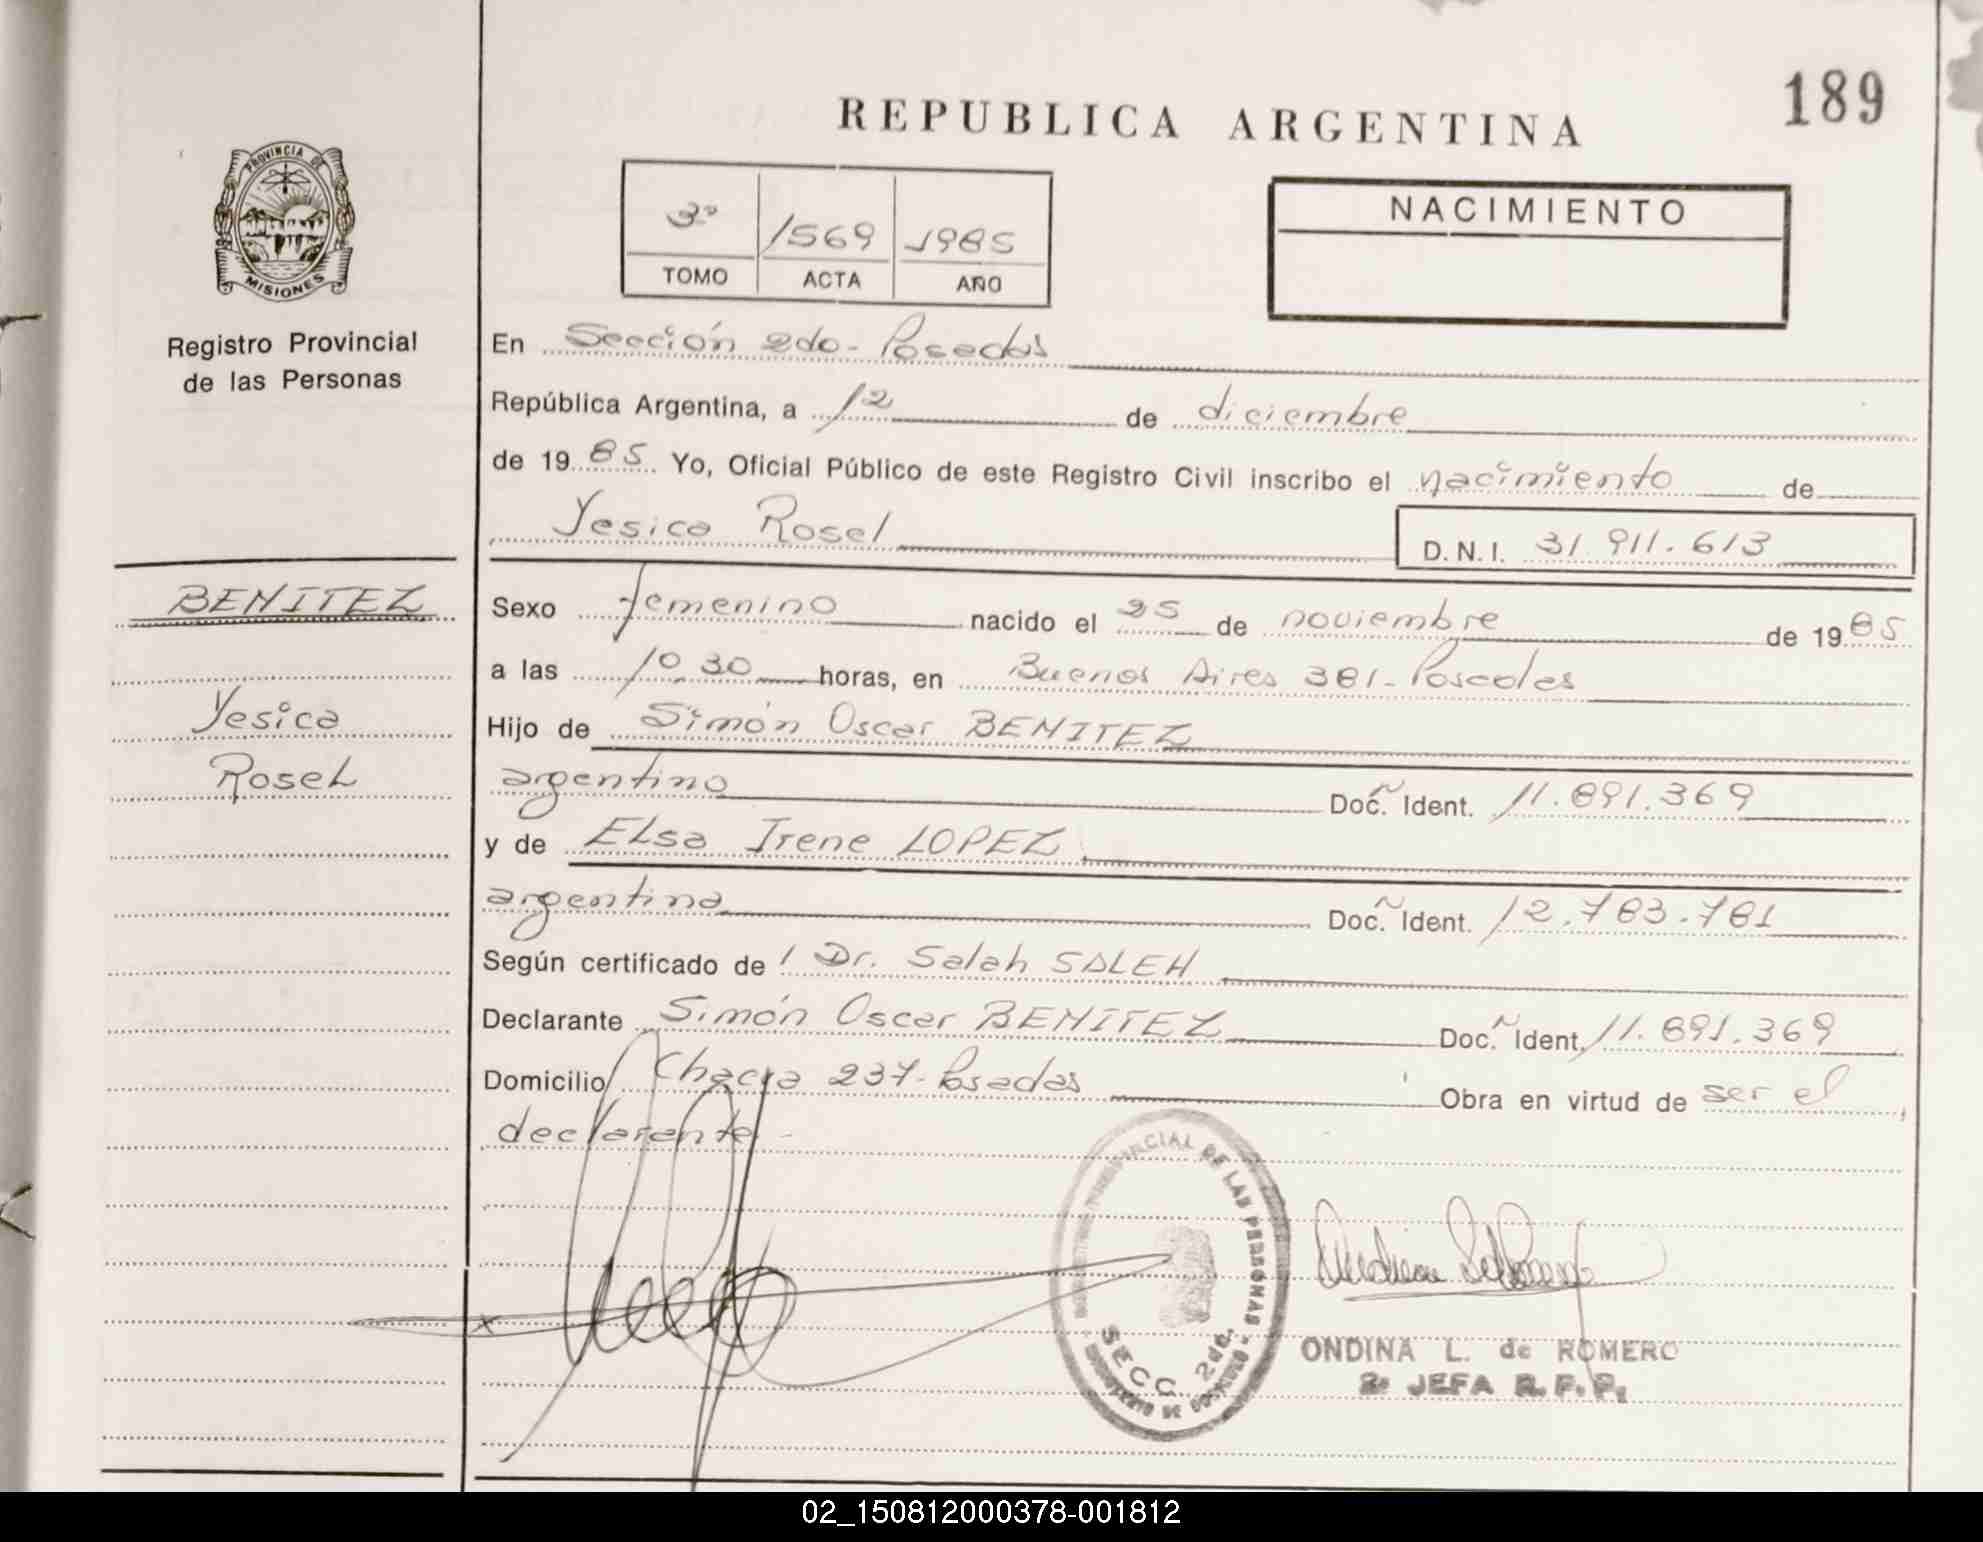 189
REPUBLICA ARGENTINA
PROVINCIA DE
MISIONES
Registro Provincial
de las Personas
3º 1569 1985
TOMO ACTA AÑO
NACIMIENTO
En Sección 2da- Posadas
República Argentina, a 12 de diciembre
de 1985. Yo, Oficial Público de este Registro Civil inscribo el nacimiento de
Yesica Rosel
D.N.I. 31.911.613
BENITEZ
Yesica
Rosel
Sexo femenino nacido el 25 de noviembre de 1985
a las 10.30 horas, en Buenos Aires 381-Posadas
Hijo de Simón Oscar BENITEZ
argentino Doc. Ident. 11.891.369
y de Elsa Irene LOPEZ
argentina Doc. Ident. 12.783.781
Según certificado de l Dr. Salah SALEH
Declarante Simón Oscar BENITEZ Doc. Ident. 11.891.369
Domicilio Chacra 237-Posadas Obra en virtud de ser el
declarante-
PROVINCIAL DE LAS PERSONAS
SECC. 2da.
ONDINA L. de ROMERO
2ª JEFA R.P.P.
02_150812000378-001812